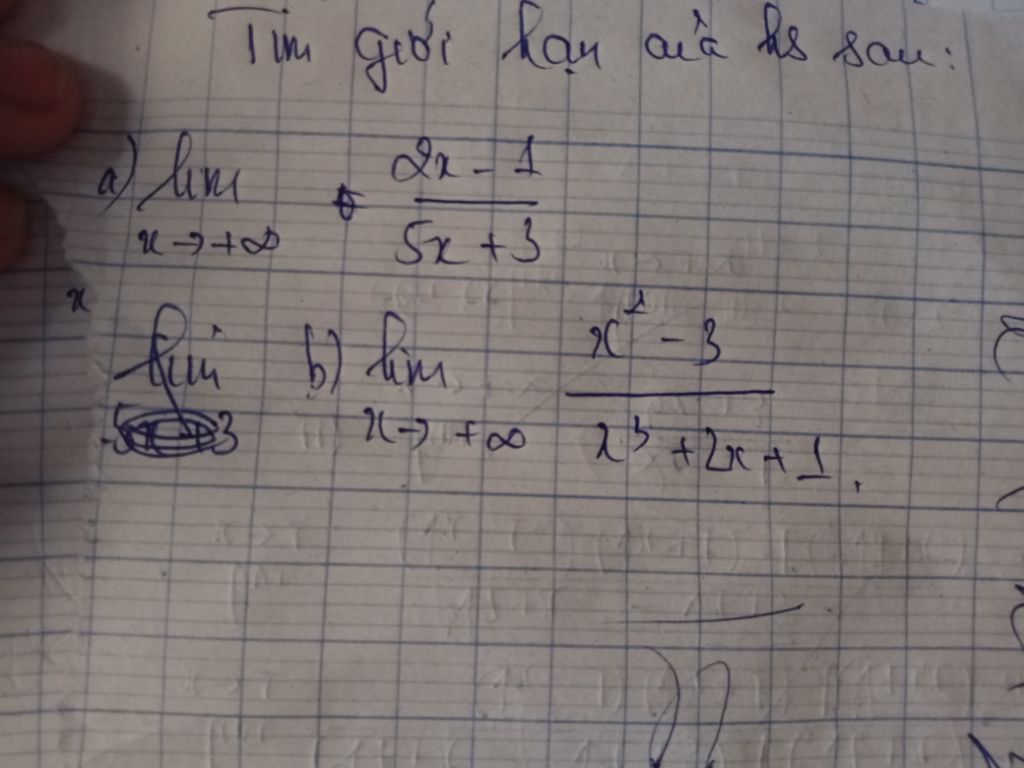 Tìm giới hạn của hs sau:
a) lim 2x - 1
x → +∞ 5x + 3
x
lim b) lim x² - 3
3 x → +∞ x³ + 2x + 1.